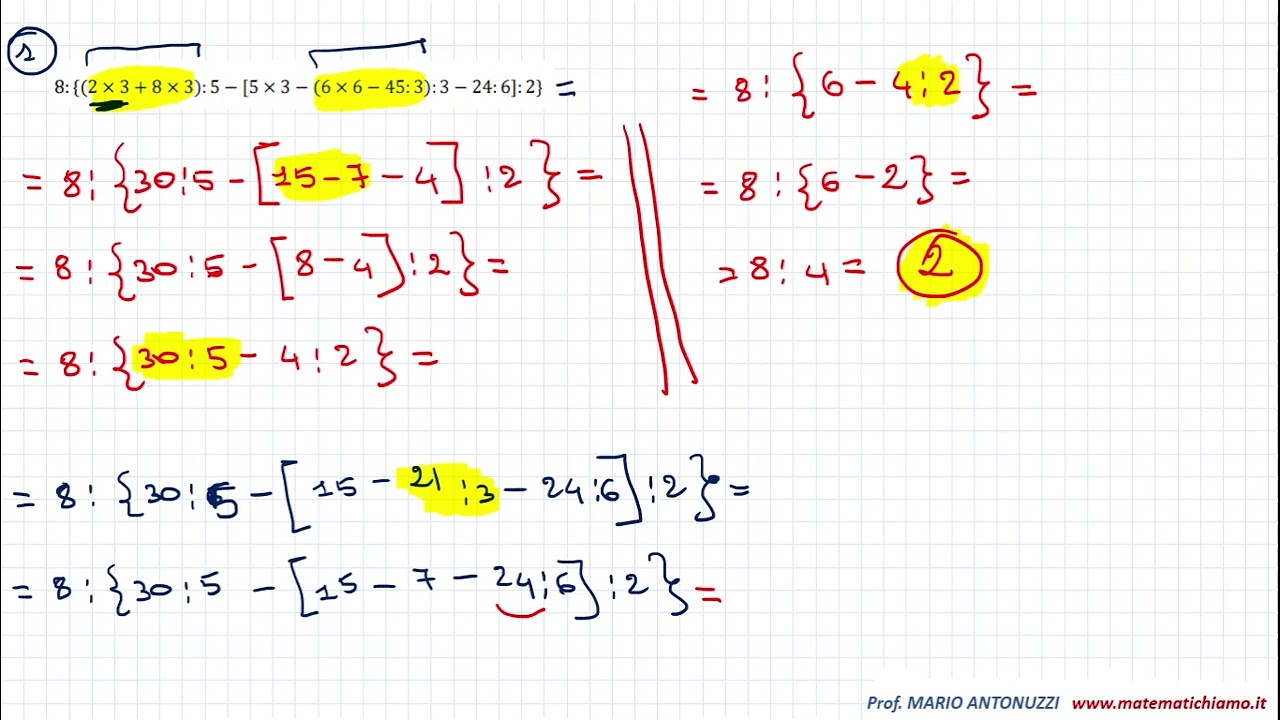 1
8:{(2 × 3 + 8 × 3): 5 − [5 × 3 − (6 × 6 − 45: 3): 3 − 24: 6]: 2} =
= 8 : {30 : 5 − [15 − 7 − 4] : 2} =
= 8 : {30 : 5 − [8 − 4] : 2} =
= 8 : {30 : 5 − 4 : 2} =
= 8 : {30 : 5 − [15 − 21 : 3 − 24 : 6] : 2} =
= 8 : {30 : 5 − [15 − 7 − 24 : 6] : 2} =
= 8 : {6 − 4 : 2} =
= 8 : {6 − 2} =
= 8 : 4 = 2
Prof. MARIO ANTONUZZI www.matematichiamo.it